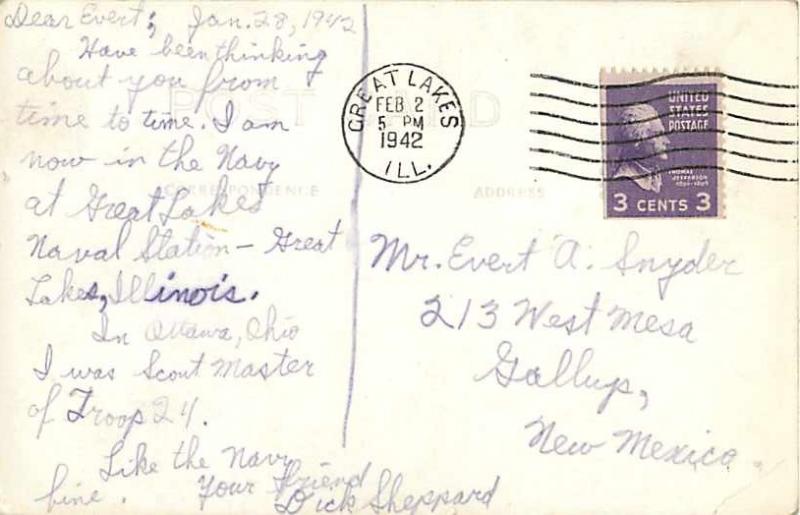 Dear Evert; Jan. 28, 1942
Have been thinking
about you from
time to time. I am
now in the Navy
at Great Lakes
Naval Station - Great
Lakes, Illinois.
In Ottawa, Ohio
I was Scout Master
of Troop 24.
Like the Navy
fine. Your Friend
Dick Sheppard
POST CARD
CORRESPONDENCE
ADDRESS
GREAT LAKES
FEB 2
5 PM
1942
ILL.
UNITED
STATES
POSTAGE
THOMAS
JEFFERSON
1801-1809
3 CENTS 3
Mr. Evert A. Snyder
213 West Mesa
Gallup,
New Mexico